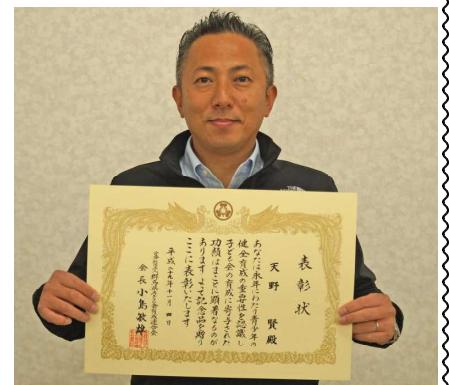 表彰状
天野 賢殿
あなたは永年にわたり青少年の
健全育成の重要性を認識し
子ども会の育成に寄与された
功績はまことに顕著なるものが
あります よって記念品を贈り
ここに表彰いたします
平成二十九年十一月 四日
会長 小島敏